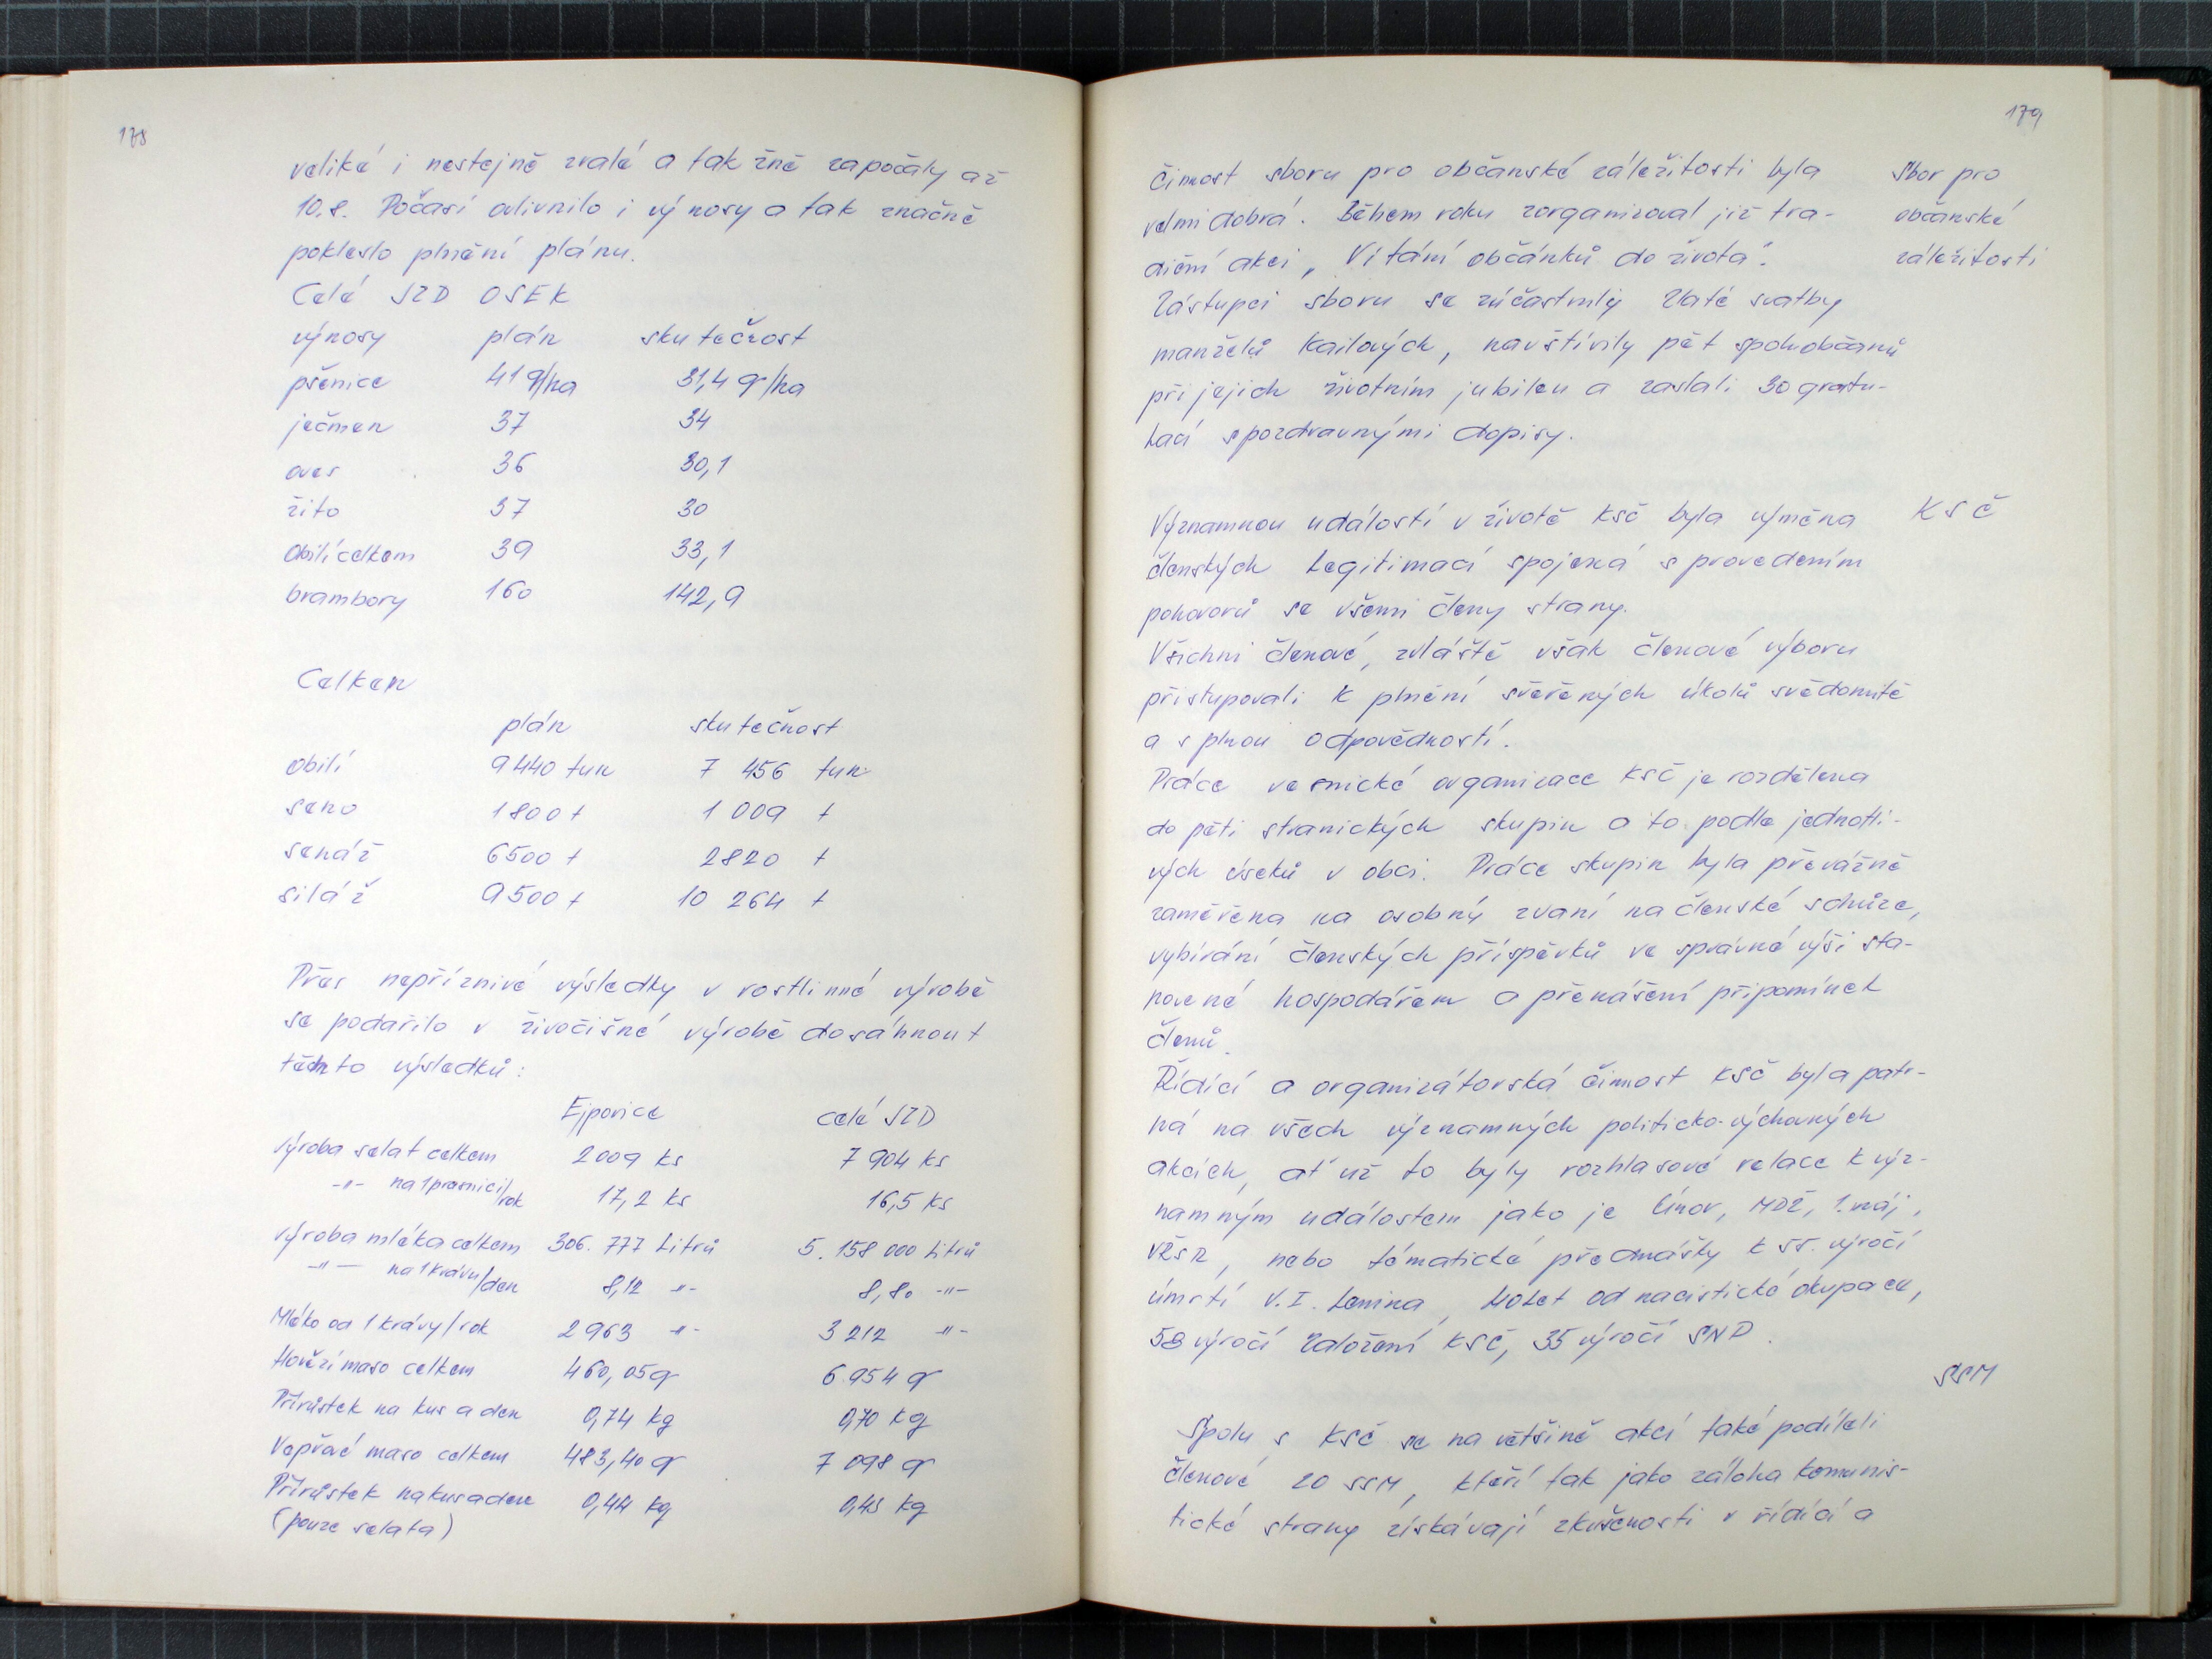 178
veliké i nestejně zralé a tak žně započaly až
10.8. Počasí ovlivnilo i výnosy a tak značně
pokleslo plnění plánu.
Celé JZD OSEK
výnosy plán skutečnost
pšenice 41 q/ha 31,4 q/ha
ječmen 37 34
oves 36 30,1
žito 37 30
obilí celkem 39 33,1
brambory 160 142,9
Celkem
plán skutečnost
obilí 9440 tun 7 456 tun
seno 1800 t 1 009 t
senáž 6500 t 2820 t
siláž 9500 t 10 264 t
Přes nepříznivé výsledky v rostlinné výrobě
se podařilo v živočišné výrobě dosáhnout
těchto výsledků:
Ejpovice celé JZD
Výroba selat celkem 2009 ks 7 904 ks
-"- na 1 prasnici/rok 17,2 ks 16,5 ks
Výroba mléka celkem 306.777 litrů 5.158 000 litrů
-"- na 1 krávu/den 8,12 -"- 8,80 -"-
Mléko od 1 krávy/rok 2963 -"- 3 212 -"-
Hovězí maso celkem 460,05 q 6.954 q
Přírůstek na kus a den 0,74 kg 0,70 kg
Vepřové maso celkem 483,40 q 7 098 q
Přírůstek na kus a den 0,44 kg 0,45 kg
(pouze selata)
179
Činnost sboru pro občanské záležitosti byla
velmi dobrá. Během roku zorganizoval již tra-
diční akci „Vítání občánků do života".
Zástupci sboru se zúčastnily Zlaté svatby
manželů Kailových, navštívily pět spoluobčanů
při jejich životním jubileu a zaslali 30 gratu-
lací s pozdravnými dopisy.
Sbor pro
občanské
záležitosti
Významnou událostí v životě KSČ byla výměna
členských legitimací spojená s provedením
pohovorů se všemi členy strany.
KSČ
Všichni členové, zvláště však členové výboru
přistupovali k plnění svěřených úkolů svědomitě
a s plnou odpovědností.
Práce vesnické organizace KSČ je rozdělena
do pěti stranických skupin a to podle jednotli-
vých úseků v obci. Práce skupin byla převážně
zaměřena na osobný zvaní na členské schůze,
vybírání členských příspěvků ve správné výši sta-
novené hospodářem a přenášení připomínek
členů.
Řídící a organizátorská činnost KSČ byla patr-
ná na všech významných politicko-výchovných
akcích, ať už to byly rozhlasové relace k výz-
namným událostem jako je Únor, MDŽ, 1.máj,
VŘSR, nebo tématické přednášky k 55. výročí
úmrtí V.I. Lenina, 40 let od nacistické okupace,
58 výročí založení KSČ, 35 výročí SNP.
SSM
Spolu s KSČ se na většině akcí také podíleli
členové ZO SSM, kteří tak jako záloha komunis-
tické strany získávají zkušenosti v řídící a